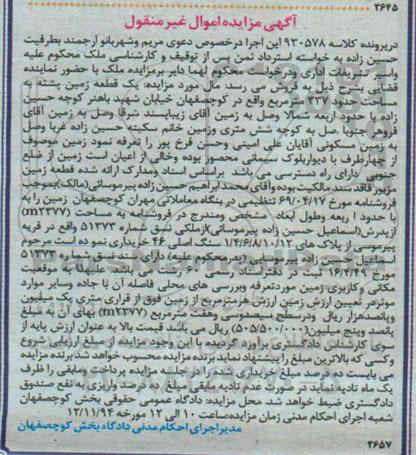 ۳۶۴۵
آگهی مزایده اموال غیر منقول
درپرونده کلاسه ۹۳۰۵۷۸ این اجرا درخصوص دعوی مریم وشهربانو ارجمند بطرفیت
حسین زاده به خواسته استرداد ثمن پس از توقیف و کارشناسی ملک محکوم علیه
وسیر تشریفات اداری ودرخواست محکوم لهما دایر برمزایده ملک با حضور نماینده
قضایی بشرح ذیل به فروش می رسد: مال مورد مزایده: یک قطعه زمین پشته به
مساحت حدود ۲۳۷ مترمربع واقع در کوچصفهان خیابان شهید باهنر کوچه حسین
زاده با حدود اربعه شمالا وصل به زمین آقای زیباپسند شرقا وصل به زمین آقای
فروهر جنوبا وصل به کوچه شش متری وزمین خانم سکینه حسین زاده غربا وصل
به زمین مسکونی آقایان علی امینی وحسن فرخ پور را تعرفه نمود زمین موصوف
از چهارطرف با دیواربلوک سیمانی محصور بوده وخالی از اعیان است زمین از ضلع
جنوبی دارای راه دسترسی می باشد براساس اسناد ومدارک ارائه شده قطعه زمین
مزبور فاقد سند مالکیت بوده وآقای محمدابراهیم حسین زاده پیرموسائی(مالک)بموجب
فروشنامه مورخ ۶۹/۰۴/۱۷ تنظیمی در بنگاه معاملاتی مهران کوچصفهان زمین را به
با حدود اربعه وطول ابعاد مشخص ومندرج در فروشنامه به مساحت (m۲۳۷۷)
ازپدرش(اسماعیل حسین زاده پیرموسائی)ازملکی نسق شماره ۵۱۳۷۳ واقع در قریه
پیرموسی از پلاک های ۱/۴/۶/۸/۱۰/۱۲ سنگ اصلی ۴۶ خریداری نموده است مرحوم
اسماعیل حسین زاده پیرموسایی (پدرمحکوم علیه) دارای سند نسق شماره ۵۱۳۷۳
مورخ ۱۶/۴/۴۹ ثبت در دفتر اسناد رسمی ۶۰ رشت می باشد علیهذا به موقعیت
مکانی وکاربری زمین موردتعرفه وبررسی های محلی فاصله آن با جاده وسایر موارد
موثردر تعیین ارزش زمین ارزش هرمترمربع از زمین فوق از قراری متری یک میلیون
وپانصدهزار ریال ودرسطح سیصدوسی وهفت مترمربع (m۲۳۷۷) بهای آن به مبلغ
پانصد وپنج میلیون(۵۰۵/۵۰۰/۰۰۰) ریال می باشد قیمت بالا به عنوان ارزش پایه از
سوی کارشناس دادگستری برآورد گردیده با این وجود مزایده از مبلغ ارزیابی شروع
وکسی که بالاترین مبلغ را پیشنهاد نماید برنده مزایده محسوب خواهد شد برنده مزایده
می بایست ده درصد مبلغ خریداری شده را در جلسه مزایده پرداخت ومابقی را ظرف
یک ماه تادیه نماید در صورت عدم تادیه مابقی مبلغ ده درصد واریزی به نفع صندوق
دادگستری ضبط خواهد شد. محل مزایده: دادگاه عمومی حقوقی بخش کوچصفهان
شعبه اجرای احکام مدنی زمان مزایده:ساعت ۱۰ الی ۱۲ مورخه ۱۲/۱۱/۹۴
مدیراجرای احکام مدنی دادگاه بخش کوچصفهان
۲۶۵۷